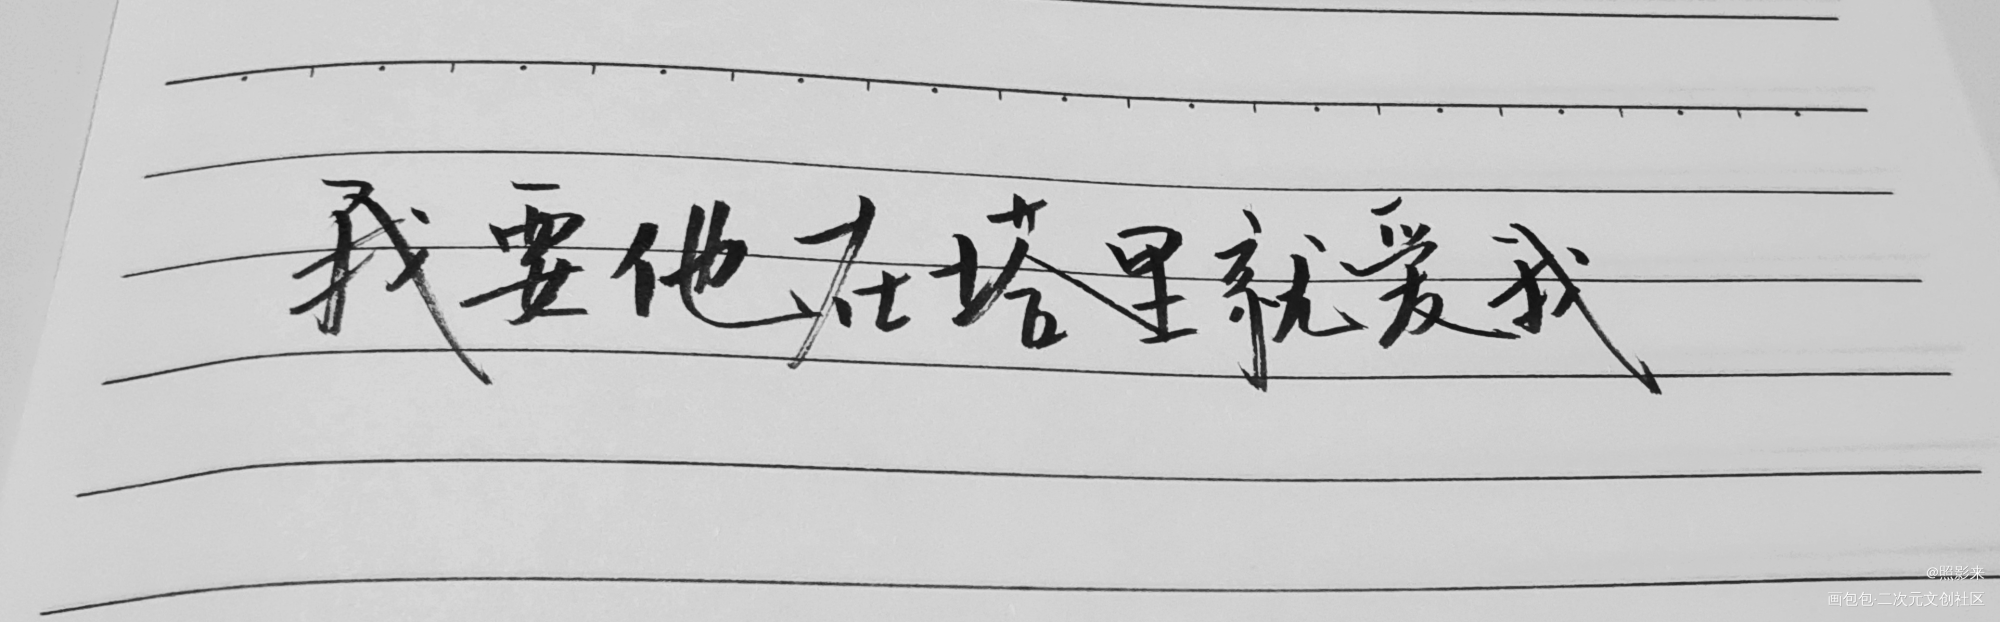 我要他在塔里就爱我
@照影来
画包包·二次元文创社区